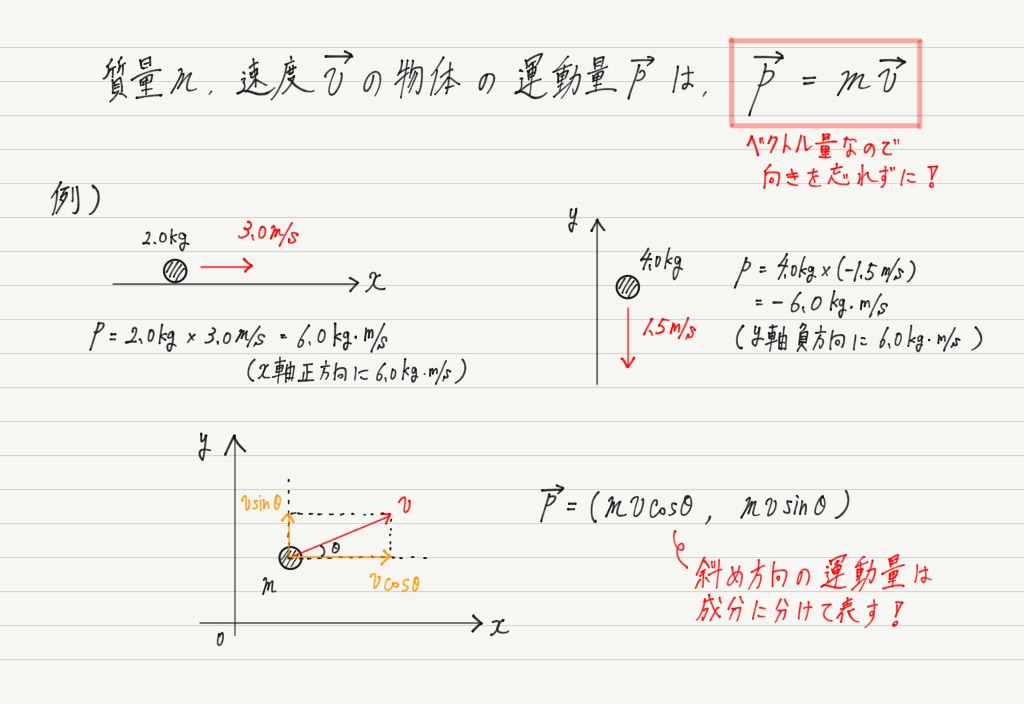 質量m, 速度v→の物体の運動量p→は, p→ = mv→
ベクトル量なので
向きを忘れずに!
例)
2.0kg
3.0m/s
x
P = 2.0kg × 3.0m/s = 6.0kg・m/s
(x軸正方向に6.0kg・m/s)
y
4.0kg
1.5m/s
P = 4.0kg×(-1.5m/s)
= -6.0kg・m/s
(y軸負方向に6.0kg・m/s)
y
vsinθ
v
θ
m
vcosθ
0
x
P→ = (mvcosθ, mvsinθ)
斜め方向の運動量は
成分に分けて表す!